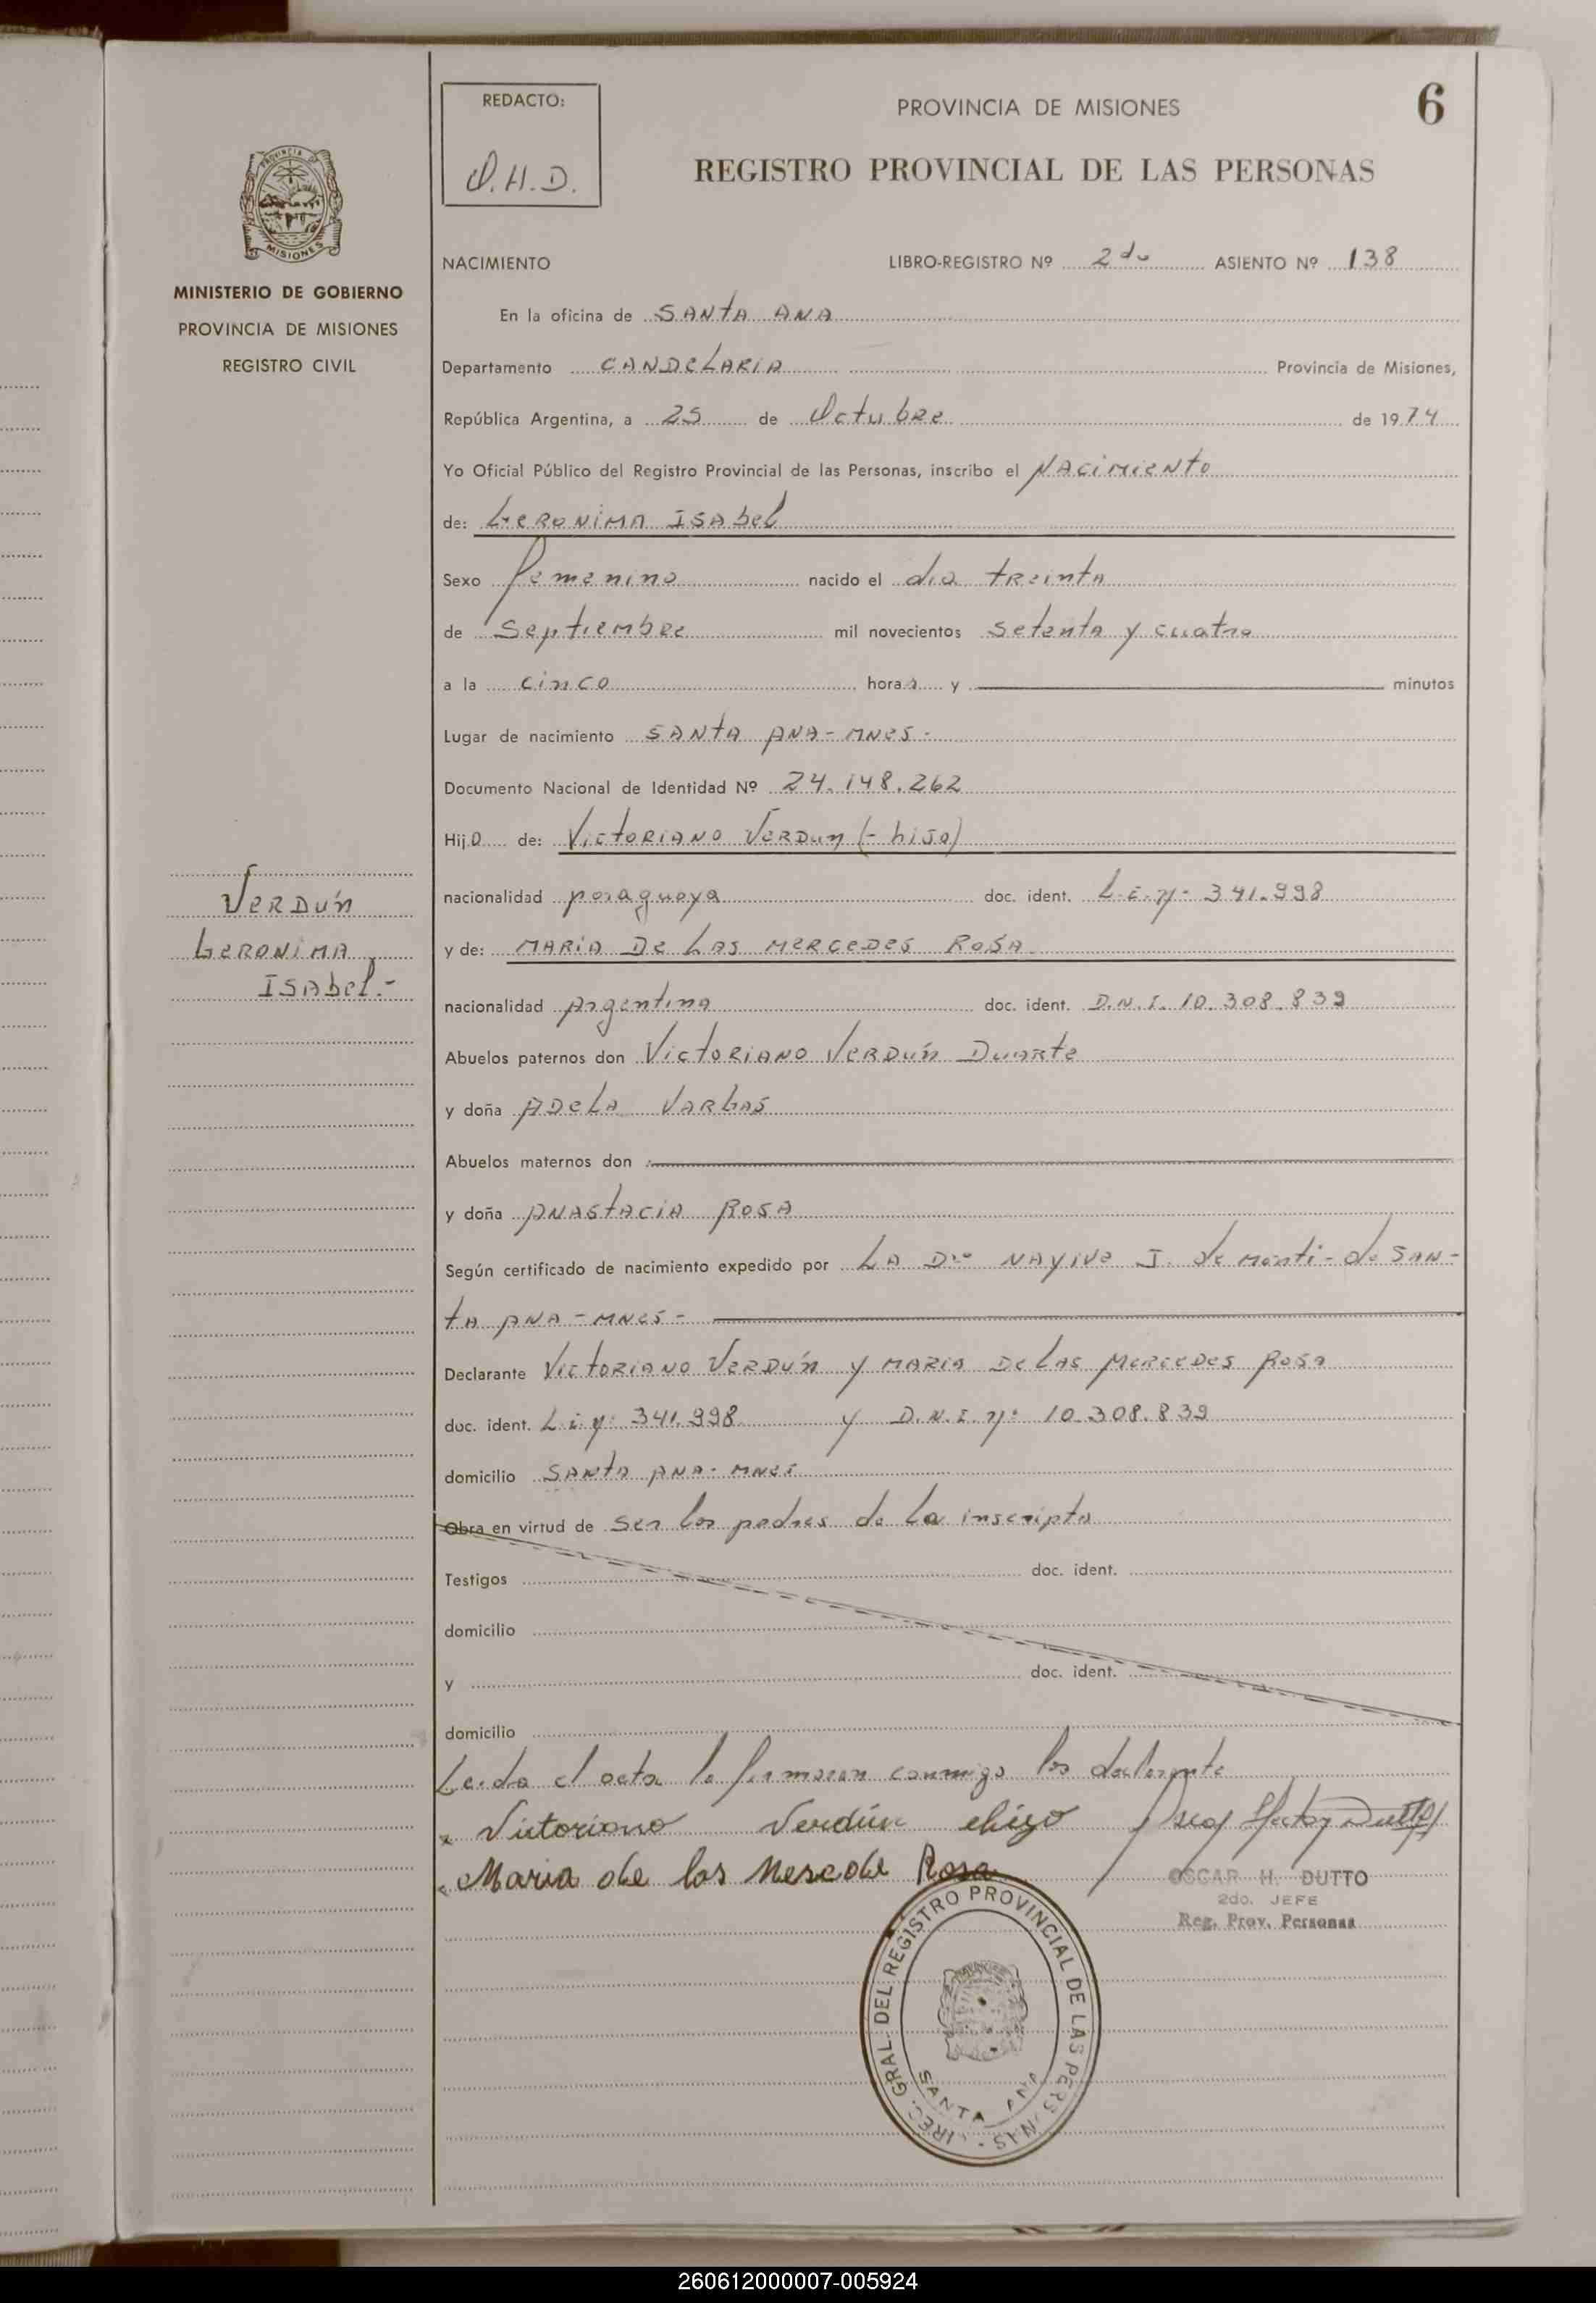 REDACTO:
O.H.D.
PROVINCIA DE MISIONES
6
REGISTRO PROVINCIAL DE LAS PERSONAS
MISIONES
MINISTERIO DE GOBIERNO
PROVINCIA DE MISIONES
REGISTRO CIVIL
NACIMIENTO LIBRO-REGISTRO Nº 2do ASIENTO Nº 138
En la oficina de SANTA ANA
Departamento CANDELARIA Provincia de Misiones,
República Argentina, a 25 de Octubre de 1974
Yo Oficial Público del Registro Provincial de las Personas, inscribo el NACIMIENTO
de: GERONIMA ISABEL
Sexo femenino nacido el día treinta
de Septiembre mil novecientos setenta y cuatro
a la cinco horas y minutos
Lugar de nacimiento SANTA ANA - MNES -
Documento Nacional de Identidad Nº 24.148.262
Hija de: VICTORIANO VERDUN (- hijo)
nacionalidad paraguaya doc. ident. L.E. Nº 341.998
y de: MARIA DE LAS MERCEDES ROSA
nacionalidad Argentina doc. ident. D.N.I. 10.308.839
Abuelos paternos don VICTORIANO VERDÚN DUARTE
y doña ADELA VARGAS
Abuelos maternos don
y doña ANASTACIA ROSA
Según certificado de nacimiento expedido por LA Dra NAYIVE J. de Monti - de SAN-
TA ANA - MNES -
Declarante VICTORIANO VERDÚN y MARIA DE LAS MERCEDES ROSA
doc. ident. L.E. Nº 341.998 y D.N.I. Nº 10.308.839
domicilio SANTA ANA - MNES
Obra en virtud de ser los padres de la inscripta
Testigos doc. ident.
domicilio
y doc. ident.
domicilio
Leida el acta la firmaron conmigo los declarante
x Victoriano Verdún ehigo
Maria de las Mercede Rosa
OSCAR H. DUTTO
2do. JEFE
Reg. Prov. Personas
VERDÚN
GERONIMA
ISABEL.-
DIREC. GRAL. DEL REGISTRO PROVINCIAL DE LAS PERSONAS -
SANTA ANA
260612000007-005924